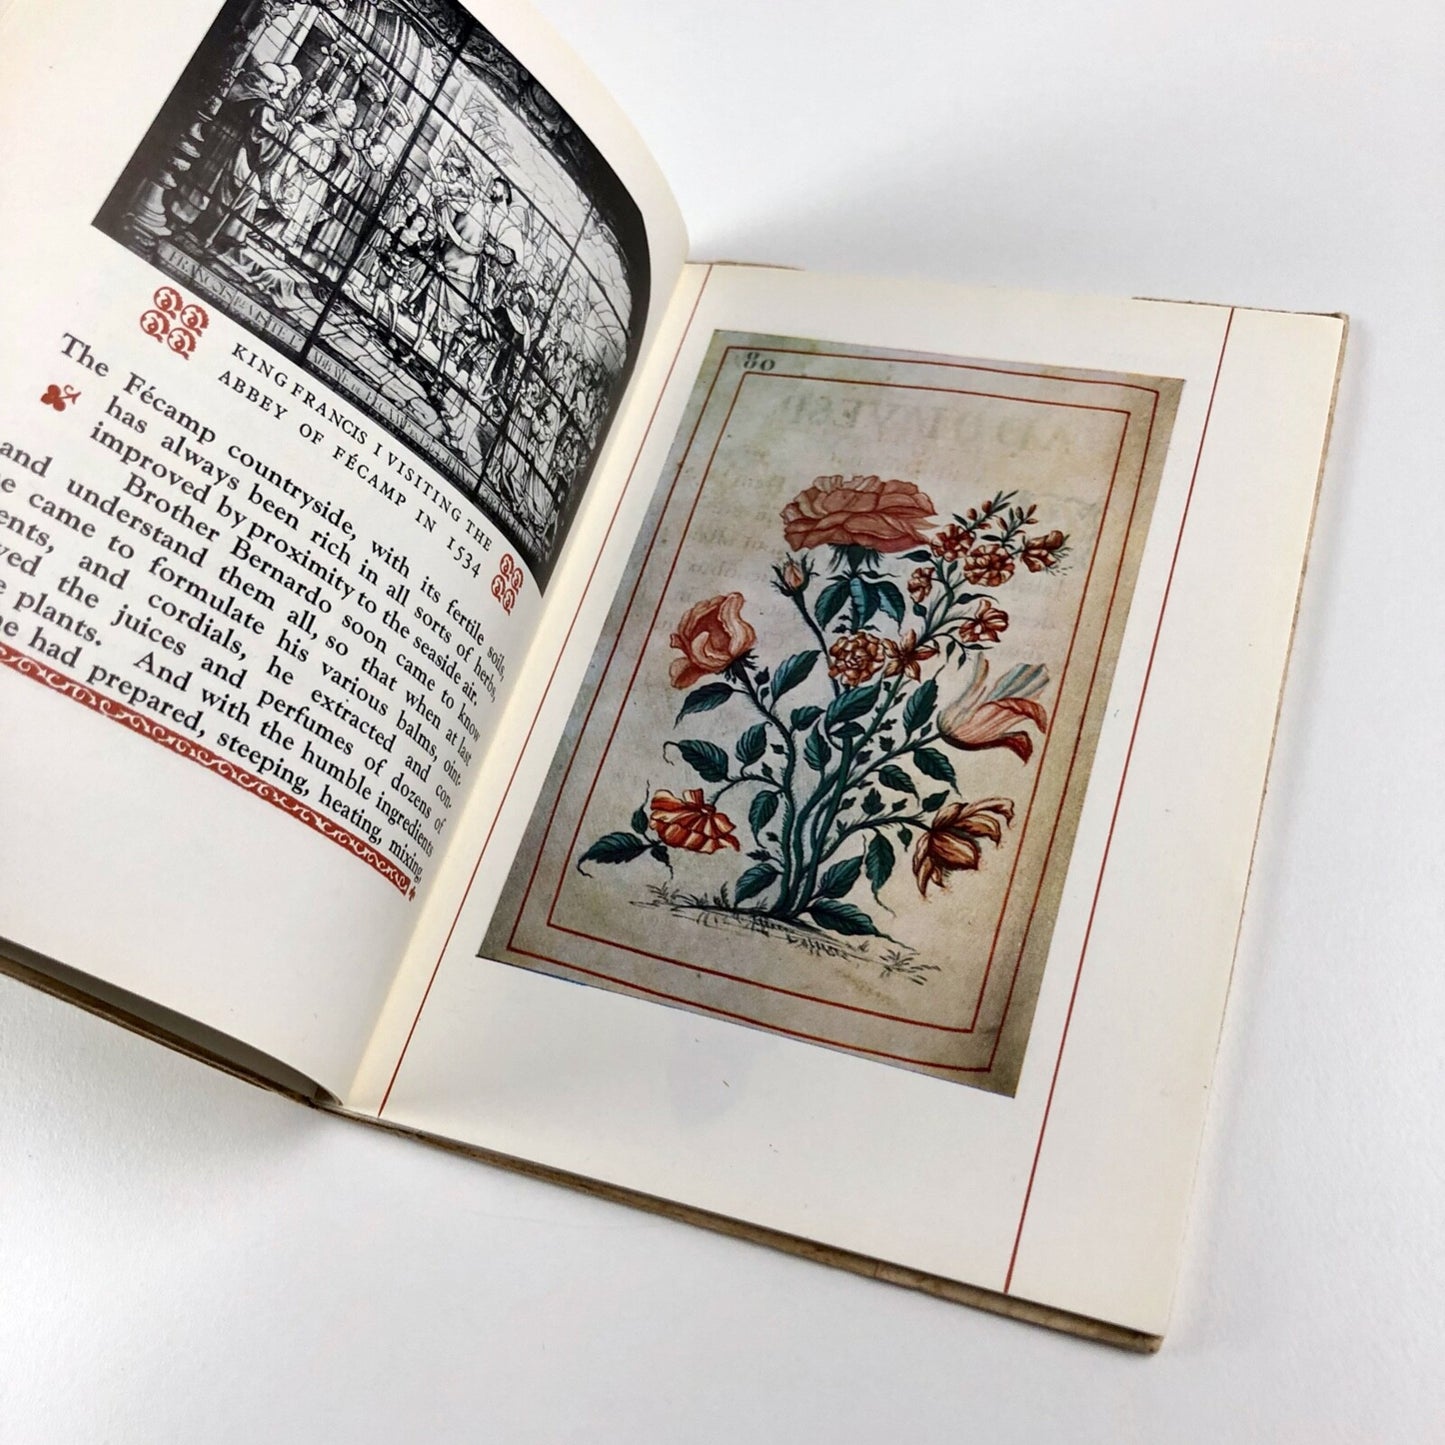 KING FRANCIS I VISITING THE
ABBEY OF FÉCAMP IN 1534
The Fécamp countryside, with its fertile soils,
has always been rich in all sorts of herbs,
improved by proximity to the seaside air.
Brother Bernardo soon came to know
and understand them all, so that when at last
came to formulate his various balms, oint-
and cordials, he extracted and con-
the juices and perfumes of dozens of
plants. And with the humble ingredients
he had prepared, steeping, heating, mixing,
80